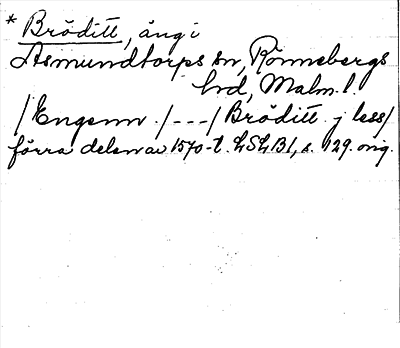 * Bröditt, äng i
Asmundtorps sn, Rönnebergs
hd, Malm. l.
/Engenn./---/Bröditt j less/
förra delen av 1570-t. LSLB1, s. 129. orig.